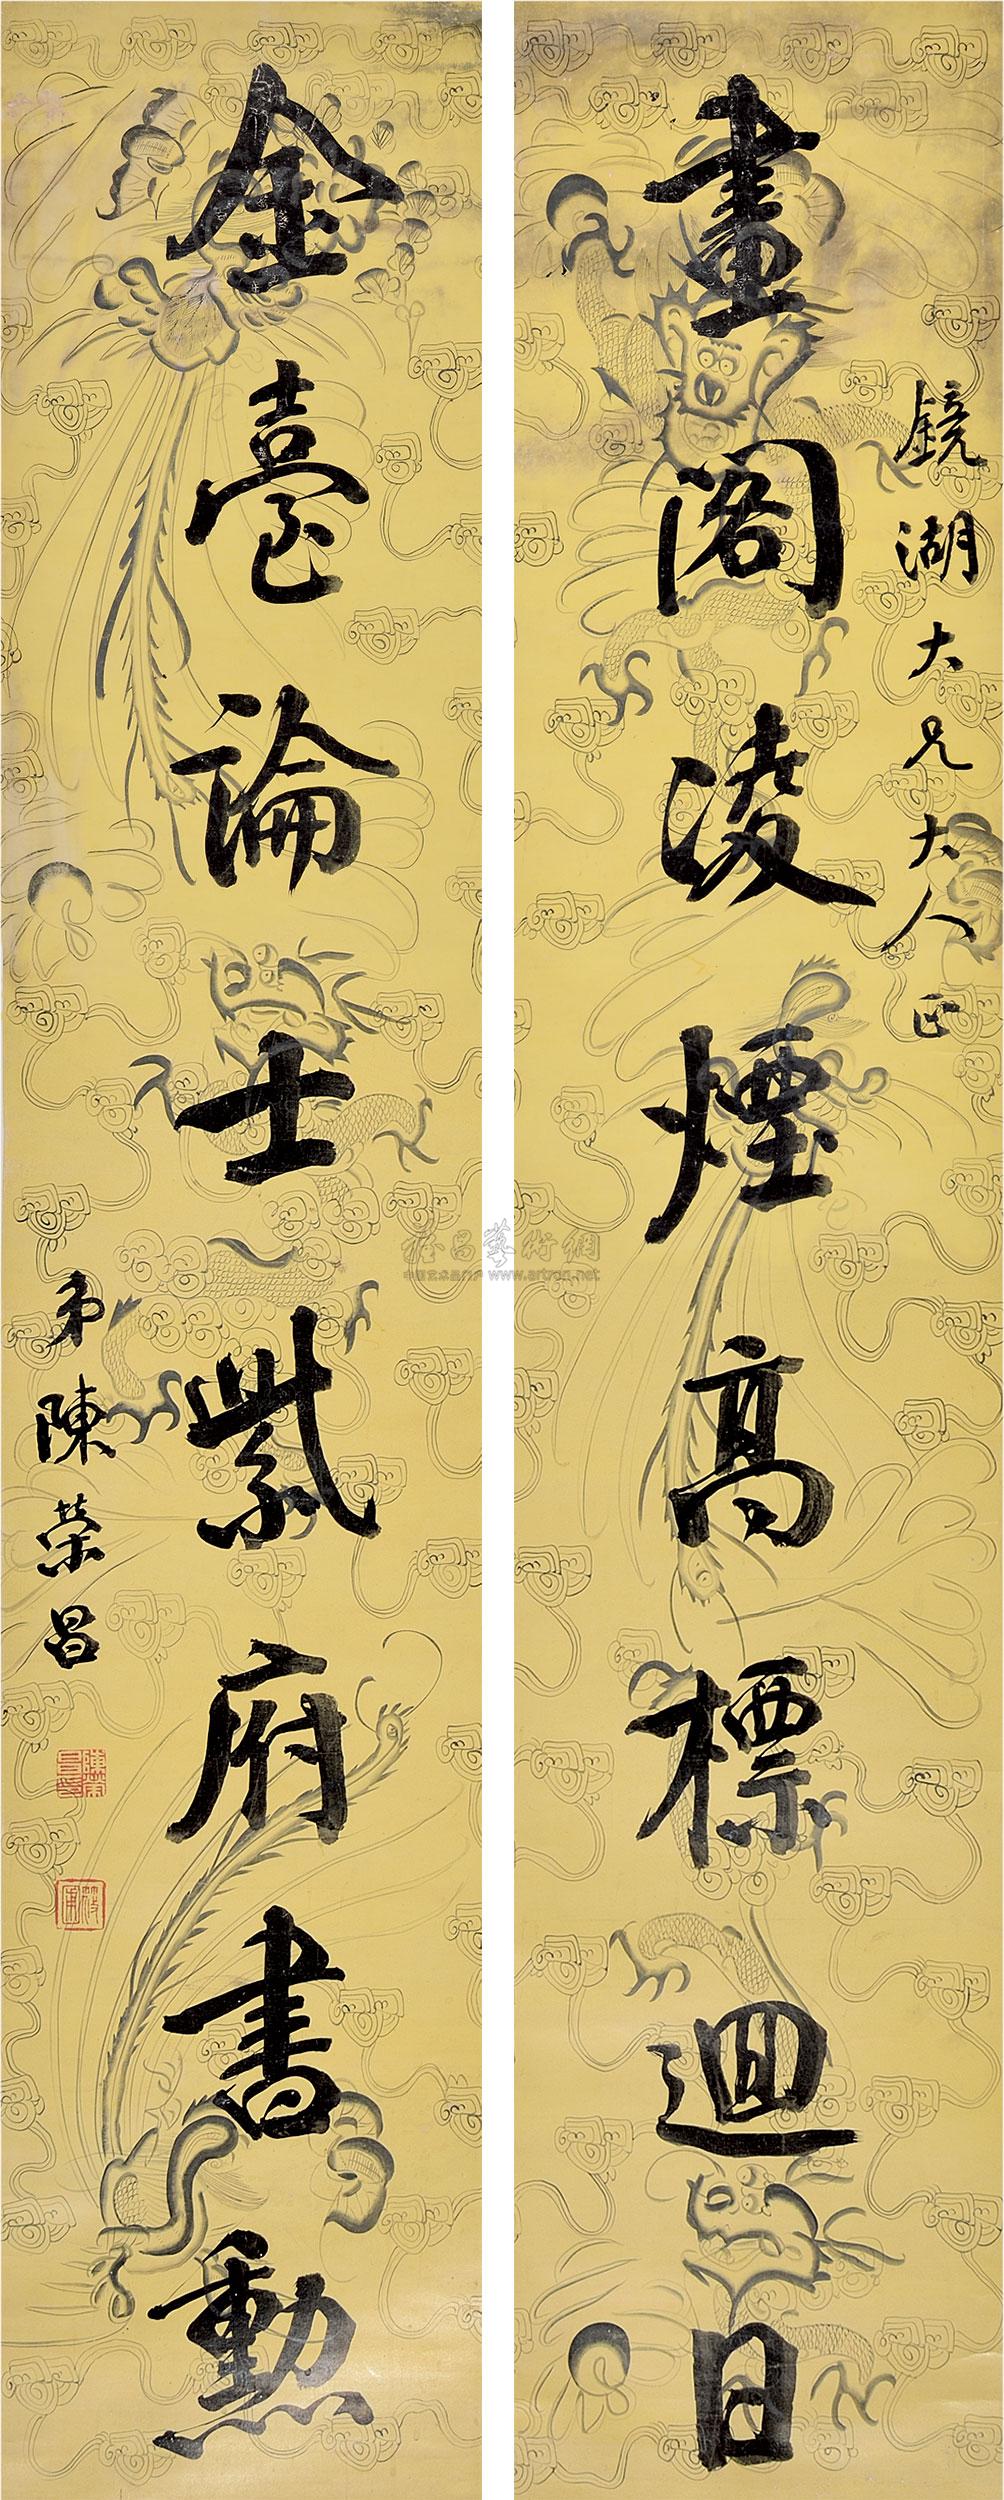 畫閣凌煙高標迴日
鏡湖大兄大人正
金臺論士紫府書勳
弟陳榮昌
雅昌藝術網
www.artron.net